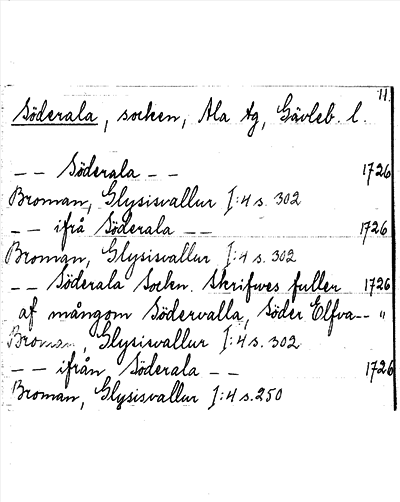 11.
Söderala, socken, Ala tg, Gävleb. l.
-- Söderala -- 1726
Broman, Glysisvallur I:4 s. 302
-- ifrå Söderala -- 1726
Broman, Glysisvallur I:4 s. 302
-- Söderala Sockn. skrifwes fuller 1726
af mångom Södervalla, Söder Elfva-- "
Broman, Glysisvallur I:4 s. 302
-- ifrån Söderala -- 1726
Broman, Glysisvallur I:4 s. 250